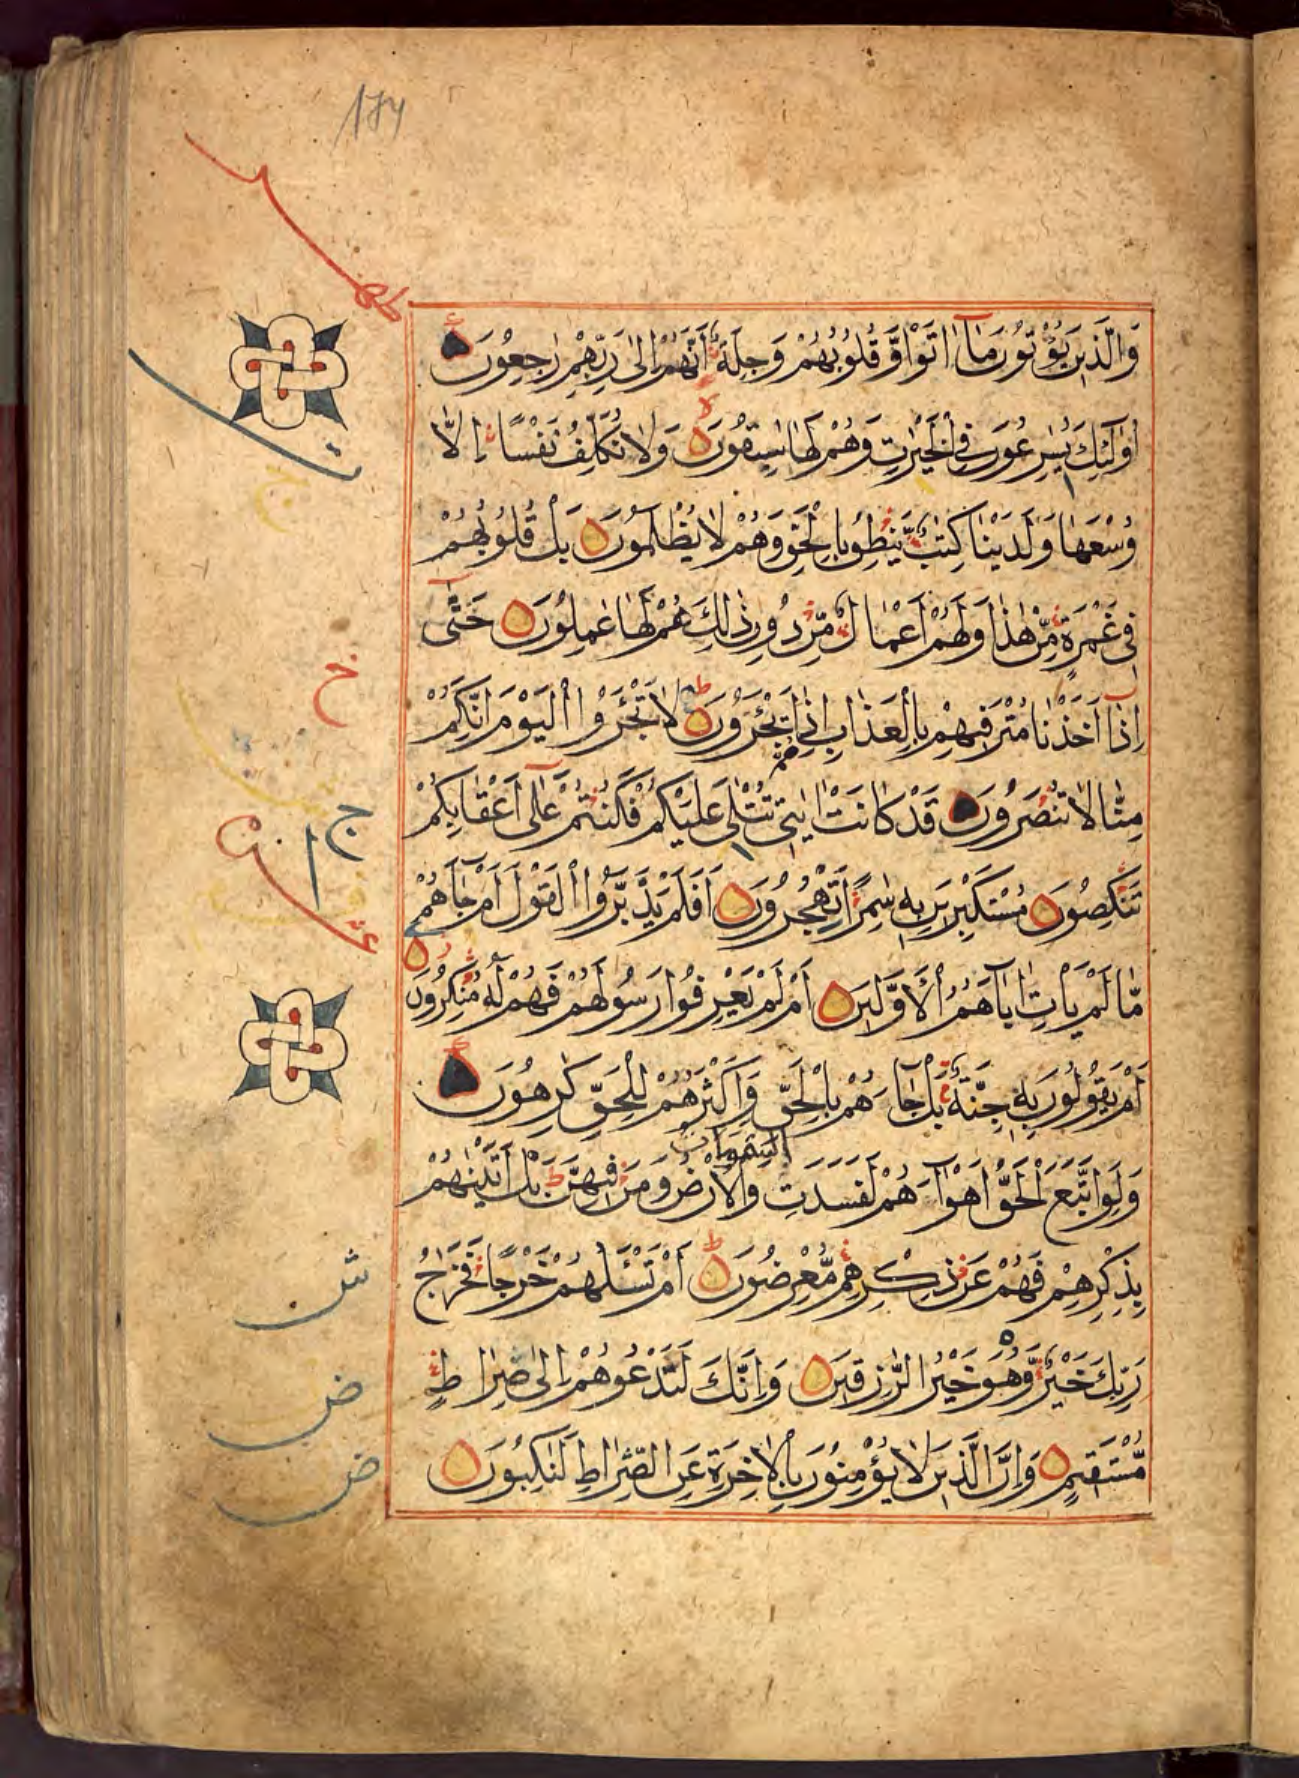 ١٧٧
وَالَّذِينَ يُؤْتُونَ مَآ اٰتَوْا وَّقُلُوبُهُمْ وَجِلَةٌ اَنَّهُمْ اِلٰى رَبِّهِمْ رٰجِعُونَ
اُولٰئِكَ يُسٰرِعُونَ فِى الْخَيْرٰتِ وَهُمْ لَهَا سٰبِقُونَ وَلَا نُكَلِّفُ نَفْسًا اِلَّا
وُسْعَهَا وَلَدَيْنَا كِتٰبٌ يَّنْطِقُ بِالْحَقِّ وَهُمْ لَا يُظْلَمُونَ بَلْ قُلُوبُهُمْ
فِى غَمْرَةٍ مِّنْ هٰذَا وَلَهُمْ اَعْمَالٌ مِّنْ دُونِ ذٰلِكَ هُمْ لَهَا عٰمِلُونَ حَتّٰى
اِذَا اَخَذْنَا مُتْرَفِيهِمْ بِالْعَذَابِ اِذَا هُمْ يَجْئَرُونَ لَا تَجْئَرُوا الْيَوْمَ اِنَّكُمْ
مِنَّا لَا تُنْصَرُونَ قَدْ كَانَتْ اٰيٰتِى تُتْلٰى عَلَيْكُمْ فَكُنْتُمْ عَلٰى اَعْقَابِكُمْ
تَنْكِصُونَ مُسْتَكْبِرِينَ بِهٖ سٰمِرًا تَهْجُرُونَ اَفَلَمْ يَدَّبَّرُوا الْقَوْلَ اَمْ جَاءَهُمْ
مَّا لَمْ يَأْتِ اٰبَاءَهُمُ الْاَوَّلِينَ اَمْ لَمْ يَعْرِفُوا رَسُولَهُمْ فَهُمْ لَهُ مُنْكِرُونَ
اَمْ يَقُولُونَ بِهٖ جِنَّةٌ بَلْ جَاءَهُمْ بِالْحَقِّ وَاَكْثَرُهُمْ لِلْحَقِّ كٰرِهُونَ
وَلَوِ اتَّبَعَ الْحَقُّ اَهْوَاءَهُمْ لَفَسَدَتِ السَّمٰوَاتُ وَالْاَرْضُ وَمَنْ فِيهِنَّ بَلْ اَتَيْنٰهُمْ
بِذِكْرِهِمْ فَهُمْ عَنْ ذِكْرِهِمْ مُّعْرِضُونَ اَمْ تَسْئَلُهُمْ خَرْجًا فَخَرَاجُ
رَبِّكَ خَيْرٌ وَّهُوَ خَيْرُ الرّٰزِقِينَ وَاِنَّكَ لَتَدْعُوهُمْ اِلٰى صِرَاطٍ
مُّسْتَقِيمٍ وَاِنَّ الَّذِينَ لَا يُؤْمِنُونَ بِالْاٰخِرَةِ عَنِ الصِّرَاطِ لَنٰكِبُونَ
خ
ج
ش
ض
ض